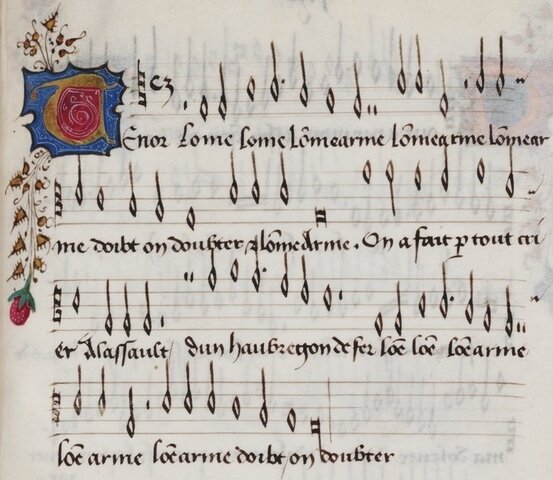 Tenor Lome Lome Lõmearme Lõmearme lõmear
me doibt on doubter A lõme Arme. On a fait p tout cri
er A lassault dun haubregon de fer lõe lõe lõe arme
lõe arme lõe arme doibt on doubter